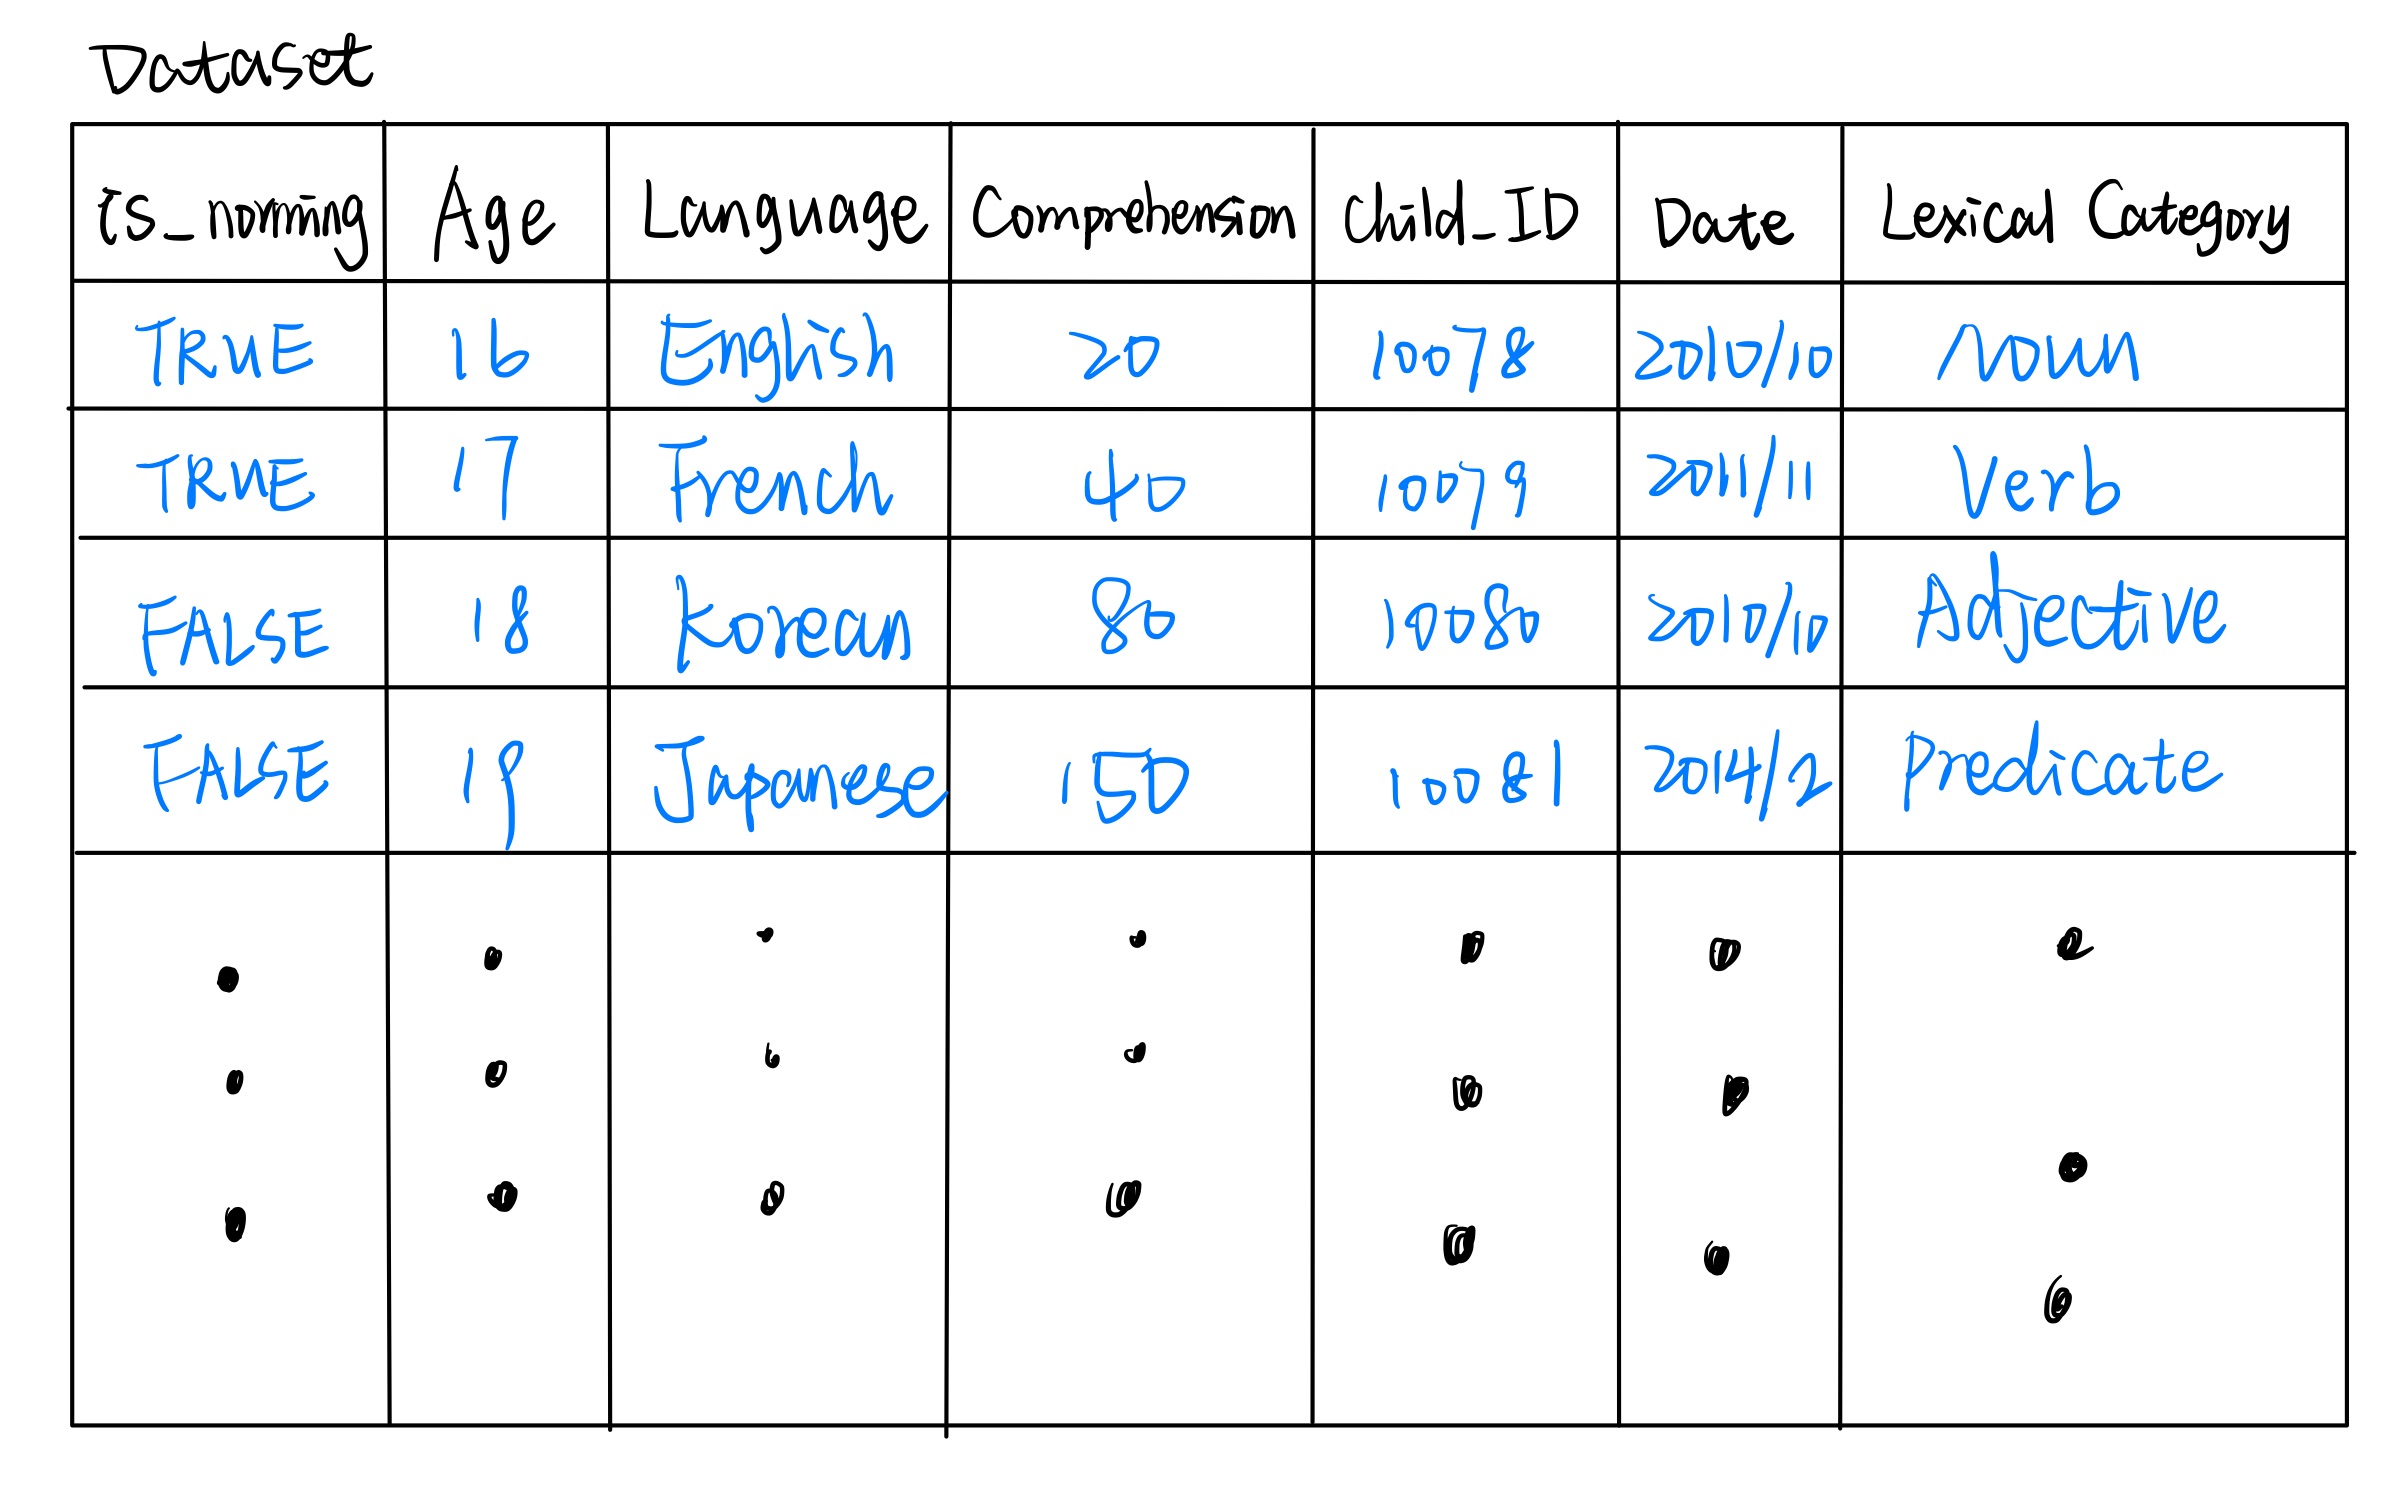 Dataset
is_norming Age Language Comprehension Child_ID Date Lexical Category
TRUE 16 English 20 10078 2010/10 noun
TRUE 17 French 40 10079 2011/11 Verb
FALSE 18 Korean 80 10080 2010/10 Adjective
FALSE 19 Japanese 150 10081 2014/2 Predicate